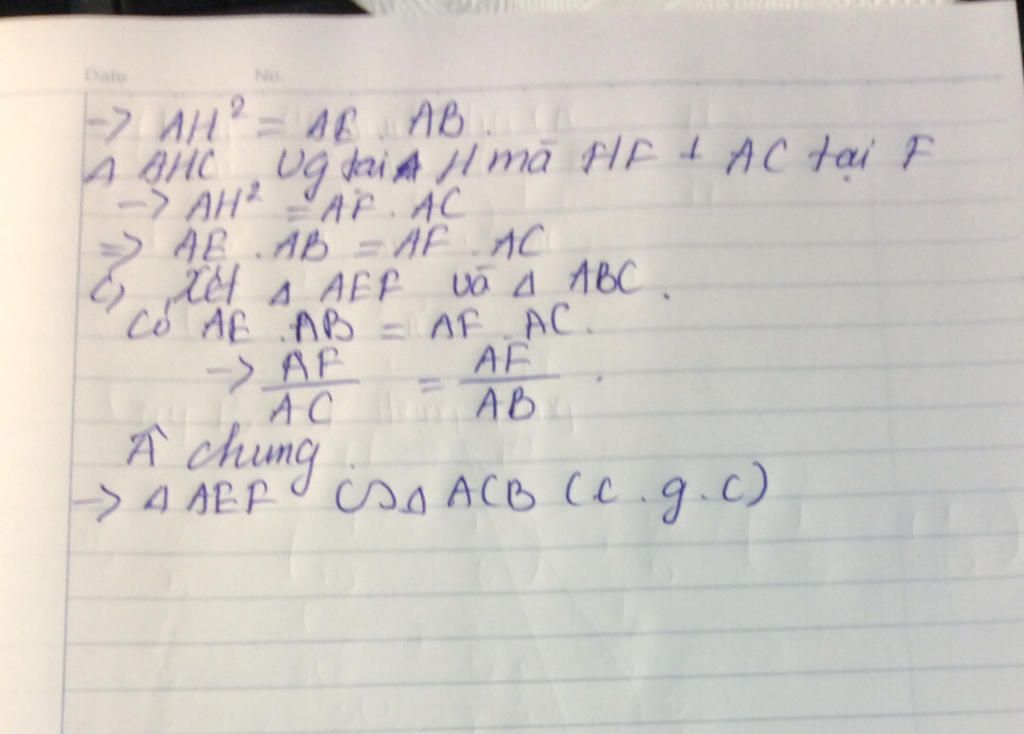 Date No.
-> AH² = AE . AB.
Δ AHC vg tại H mà HF ⊥ AC tại F
-> AH² = AF . AC
=> AE . AB = AF . AC
c, Xét Δ AEF và Δ ABC.
Có AE . AB = AF . AC.
-> AF/AC = AE/AB.
Â chung.
-> Δ AEF ∽ Δ ACB (c.g.c)